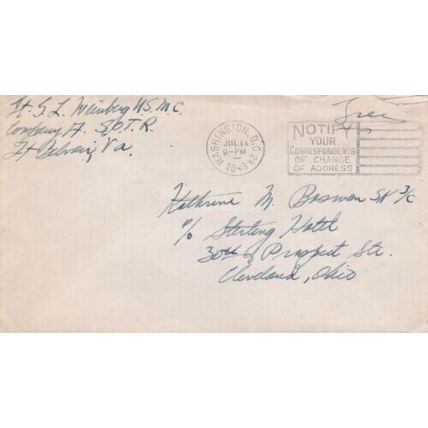 Lt. S. L. Weinberg U.S.M.C.
Company A. S.O.T.R.
Ft Belvoir, Va.
Free
WASHINGTON, D.C. 2
JUL 11
9-PM
1943
NOTIFY
YOUR
CORRESPONDENTS
OF CHANGE
OF ADDRESS
Kathrine M. Bosman SK 3/c
c/o Sterling Hotel
30th & Prospect Str.
Cleveland, Ohio